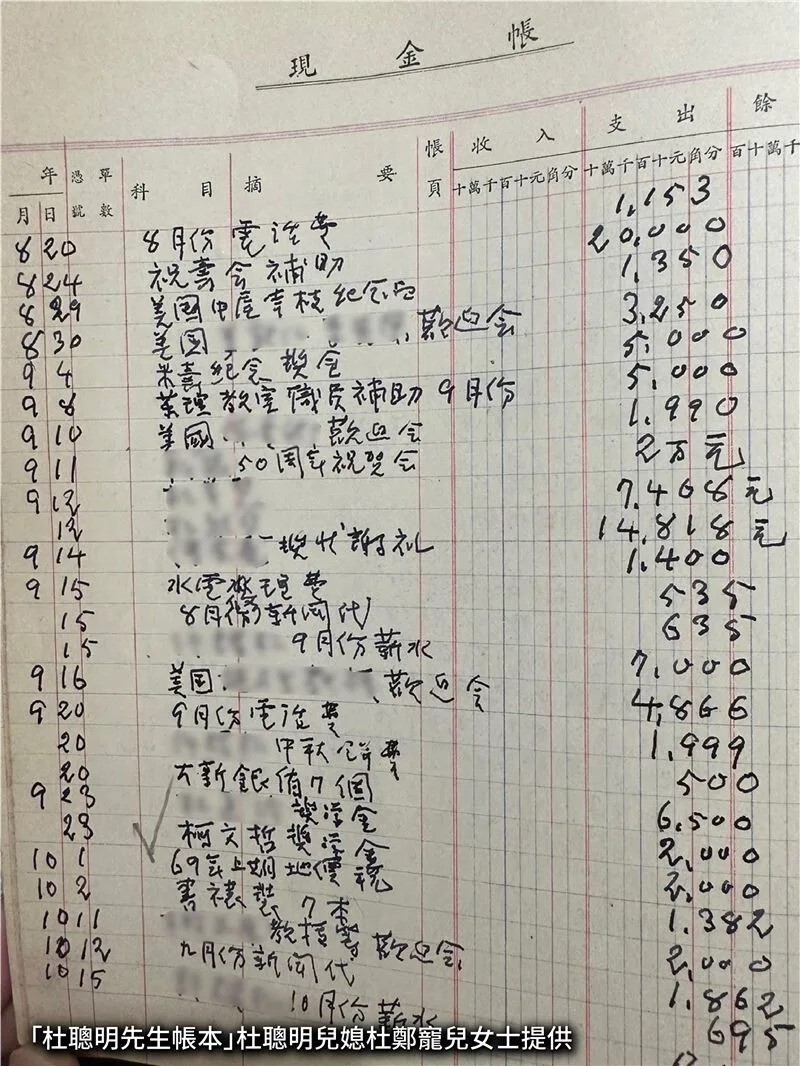 現金帳
年 憑單 科目 摘要 帳 收入 支出 餘
月 日 號數 頁 十萬千百十元角分 十萬千百十元角分 百十萬千
8 20 8月份電話費 1,153
8 24 祝壽会補助 20,000
8 29 美国中屋幸枝紀念 1,350
8 30 美国 歡迎会 3,250
9 4 米壽紀念奬金 5,000
9 8 薬理教室職員補助9月份 5,000
9 10 美國 歡迎会 1,990
9 11 50周年祝賀会 2万元
9 12 7,408元
12 14,818元
9 14 奬状謝礼 1,400
9 15 水電 費 535
15 8月份新聞代 635
15 9月份薪水 7,000
9 16 美国 歡迎会 4,866
9 20 9月份電話費 1,999
20 中秋 費 500
20 大新銀 7個 6,500
9 23 奬学金 2,000
23 柯文哲奬学金 2,000
10 1 69年上期地價税 1,382
10 2 書裱裝7本 2,000
10 11 教授等歡迎会 1,862
10 12 九月份新聞代 695
10 15 10月份薪水
「杜聰明先生帳本」杜聰明兒媳杜鄭寵兒女士提供